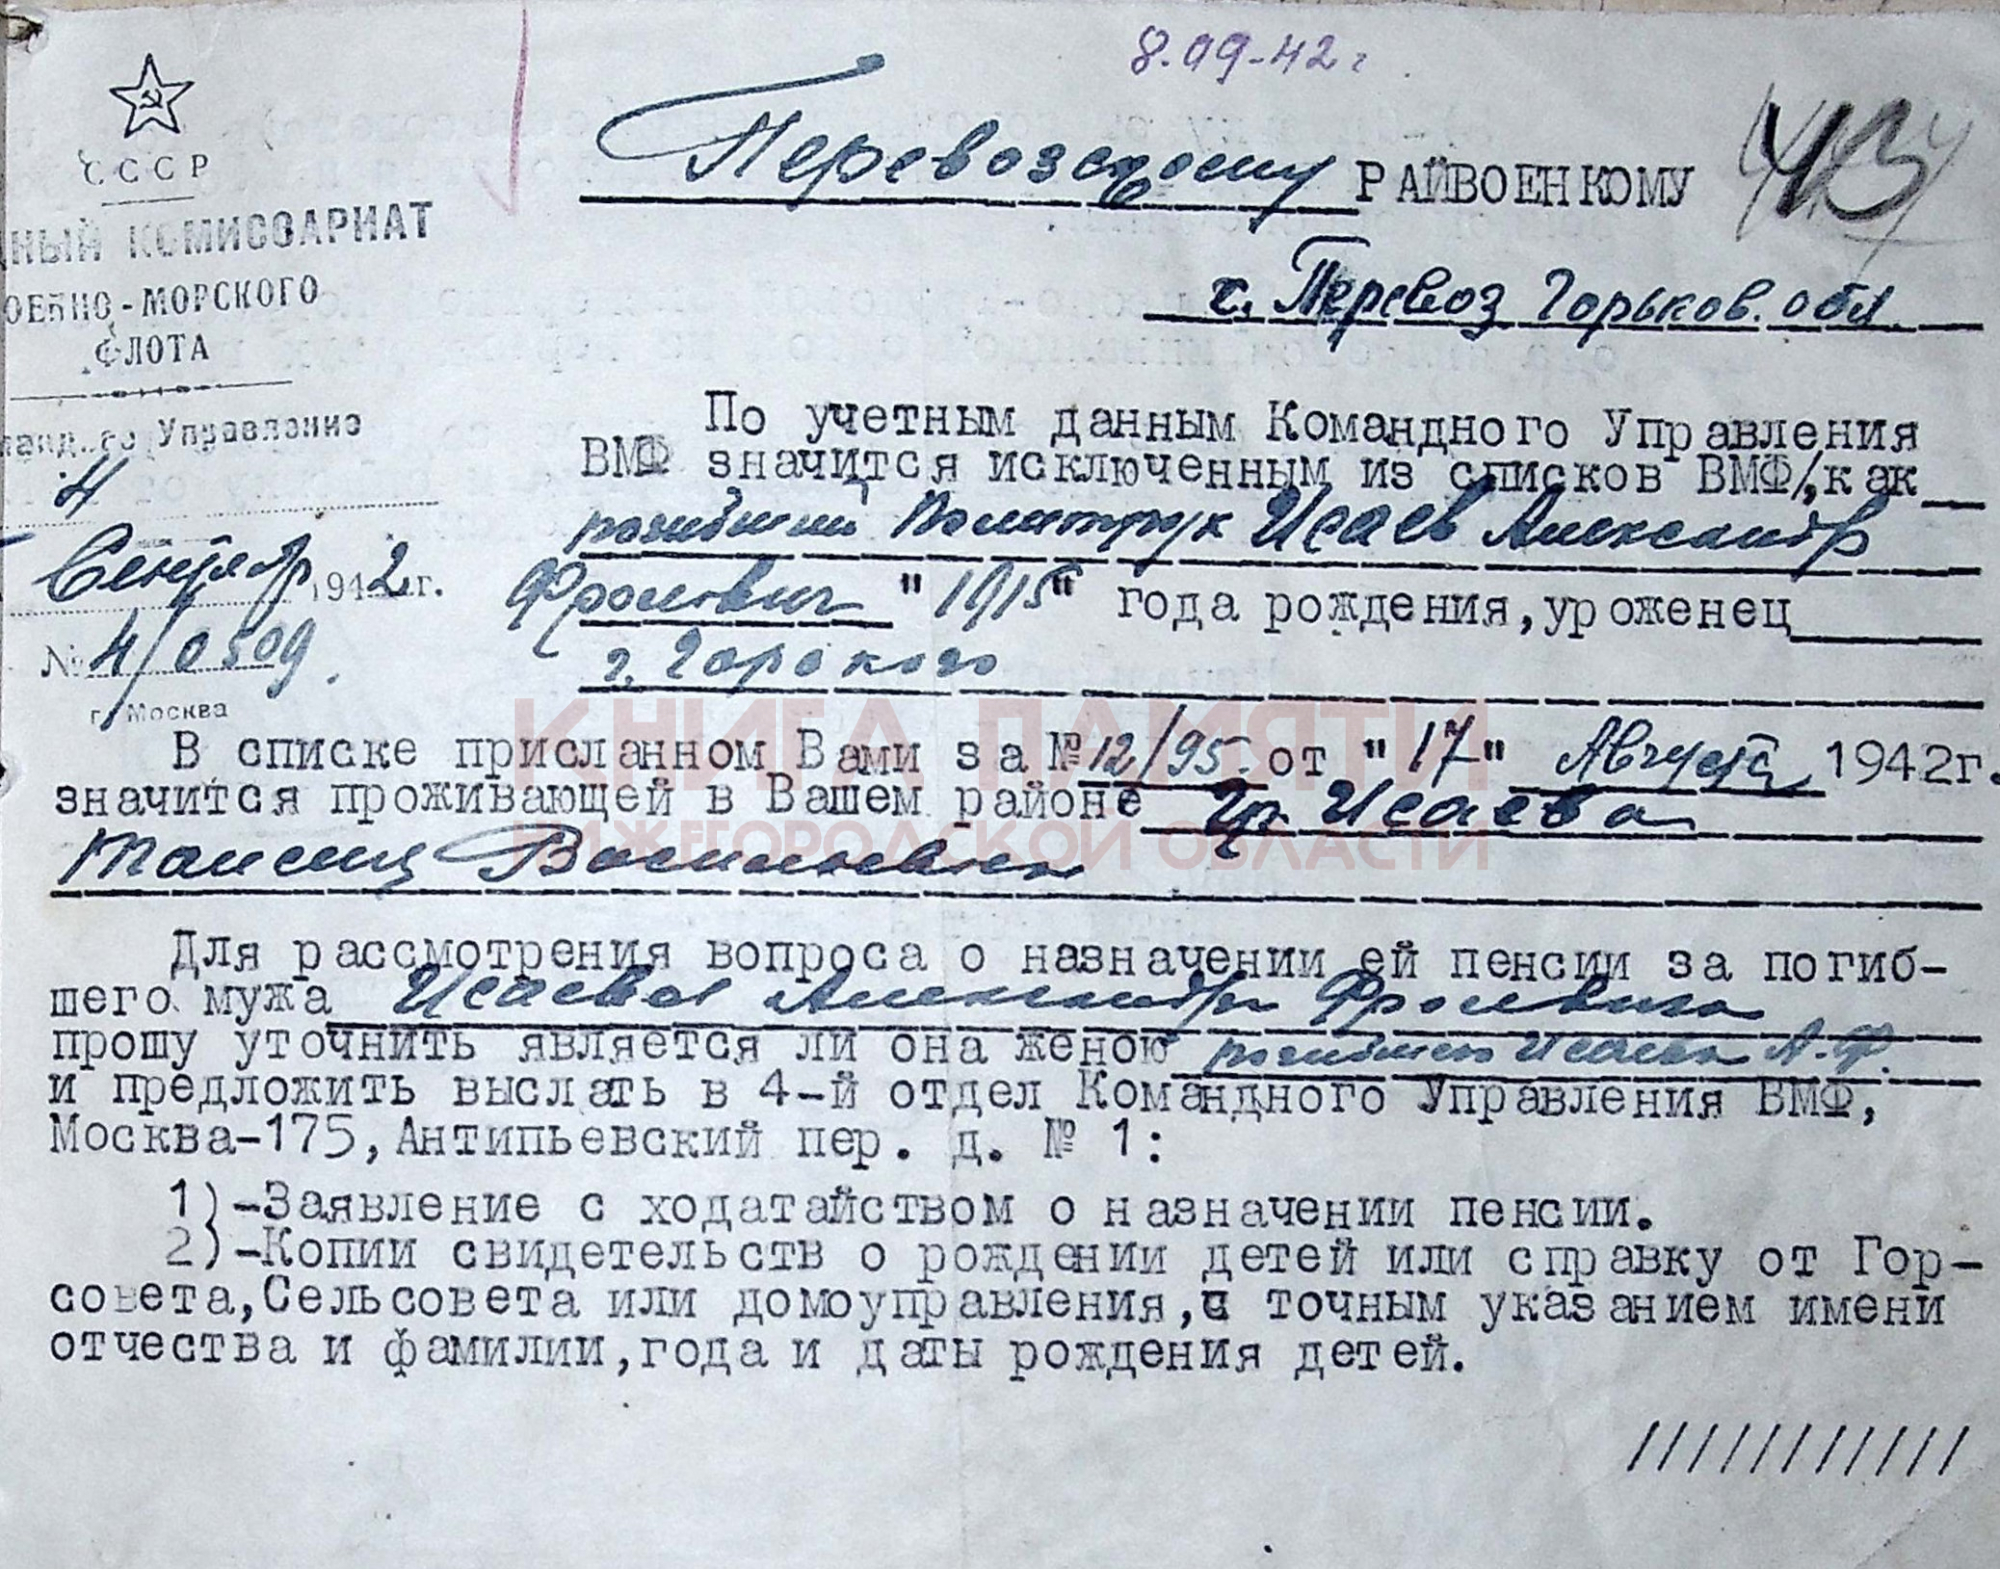 8.09-42 г.
СССР
НЫЙ КОМИССАРИАТ
ОЕННО-МОРСКОГО
ФЛОТА
Управление
4
Сентября 1942 г.
№ 4/0509.
г. Москва
Перевозскому РАЙВОЕНКОМУ
43
с. Перевоз Горьков. обл.
По учетным данным Командного Управления
ВМФ значится исключенным из списков ВМФ, как
погибший Политрук Исаев Александр
Фролович "1915" года рождения, уроженец
г. Горького
В списке присланном Вами за № 12/95 от "17" Августа 1942г.
значится проживающей в Вашем районе Гр. Исаева
Таисия Васильевна
Для рассмотрения вопроса о назначении ей пенсии за погиб-
шего мужа Исаева Александра Фроловича
прошу уточнить является ли она женою погибшего Исаева А.Ф.
и предложить выслать в 4-й отдел Командного Управления ВМФ,
Москва-175, Антипьевский пер. д. № 1:
1)-Заявление с ходатайством о назначении пенсии.
2)-Копии свидетельств о рождении детей или справку от Гор-
совета, Сельсовета или домоуправления, с точным указанием имени
отчества и фамилии, года и даты рождения детей.
///////////
КНИГА ПАМЯТИ
НИЖЕГОРОДСКОЙ ОБЛАСТИ